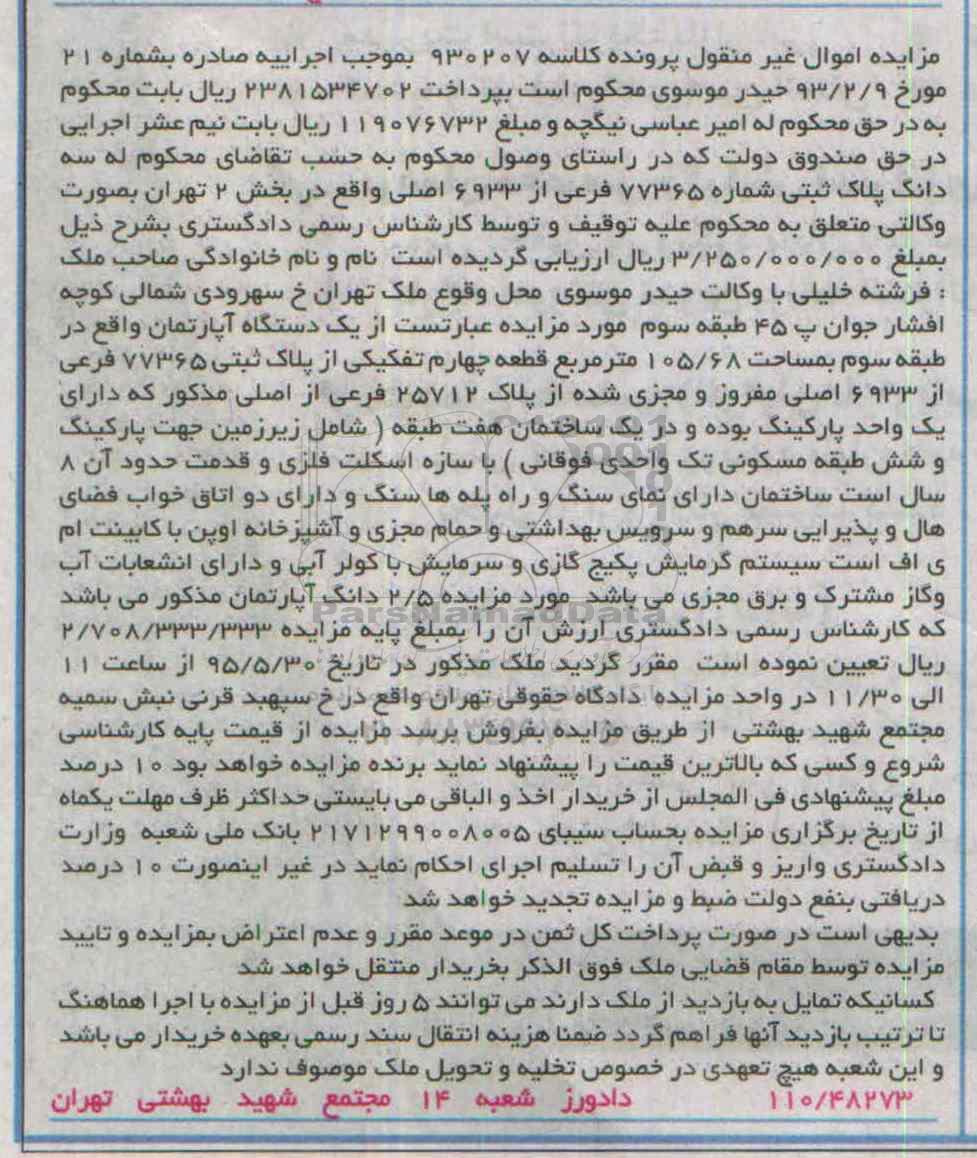 مزایده اموال غیر منقول پرونده کلاسه ۹۳۰۲۰۷ بموجب اجراییه صادره بشماره ۲۱
مورخ ۹۳/۲/۹ حیدر موسوی محکوم است بپرداخت ۲۳۸۱۵۳۴۷۰۲ ریال بابت محکوم
به در حق محکوم له امیر عباسی نیگچه و مبلغ ۱۱۹۰۷۶۷۳۲ ریال بابت نیم عشر اجرایی
در حق صندوق دولت که در راستای وصول محکوم به حسب تقاضای محکوم له سه
دانگ پلاک ثبتی شماره ۷۷۳۶۵ فرعی از ۶۹۳۳ اصلی واقع در بخش ۲ تهران بصورت
وکالتی متعلق به محکوم علیه توقیف و توسط کارشناس رسمی دادگستری بشرح ذیل
بمبلغ ۳/۲۵۰/۰۰۰/۰۰۰ ریال ارزیابی گردیده است نام و نام خانوادگی صاحب ملک
: فرشته خلیلی با وکالت حیدر موسوی محل وقوع ملک تهران خ سهرودی شمالی کوچه
افشار جوان پ ۴۵ طبقه سوم مورد مزایده عبارتست از یک دستگاه آپارتمان واقع در
طبقه سوم بمساحت ۱۰۵/۶۸ مترمربع قطعه چهارم تفکیکی از پلاک ثبتی ۷۷۳۶۵ فرعی
از ۶۹۳۳ اصلی مفروز و مجزی شده از پلاک ۲۵۷۱۲ فرعی از اصلی مذکور که دارای
یک واحد پارکینگ بوده و در یک ساختمان هفت طبقه ( شامل زیرزمین جهت پارکینگ
و شش طبقه مسکونی تک واحدی فوقانی ) با سازه اسکلت فلزی و قدمت حدود آن ۸
سال است ساختمان دارای نمای سنگ و راه پله ها سنگ و دارای دو اتاق خواب فضای
هال و پذیرایی سرهم و سرویس بهداشتی و حمام مجزی و آشپزخانه اوپن با کابینت ام
ی اف است سیستم گرمایش پکیج گازی و سرمایش با کولر آبی و دارای انشعابات آب
وگاز مشترک و برق مجزی می باشد مورد مزایده ۲/۵ دانگ آپارتمان مذکور می باشد
ParsNamadData
که کارشناس رسمی دادگستری ارزش آن را بمبلغ پایه مزایده ۲/۷۰۸/۳۳۳/۳۳۳
ریال تعیین نموده است مقرر گردید ملک مذکور در تاریخ ۹۵/۵/۳۰ از ساعت ۱۱
الی ۱۱/۳۰ در واحد مزایده دادگاه حقوقی تهران واقع در خ سپهبد قرنی نبش سمیه
مجتمع شهید بهشتی از طریق مزایده بفروش برسد مزایده از قیمت پایه کارشناسی
شروع و کسی که بالاترین قیمت را پیشنهاد نماید برنده مزایده خواهد بود ۱۰ درصد
مبلغ پیشنهادی فی المجلس از خریدار اخذ و الباقی می بایستی حداکثر ظرف مهلت یکماه
از تاریخ برگزاری مزایده بحساب سیبای ۲۱۷۱۲۹۹۰۰۸۰۰۵ بانک ملی شعبه وزارت
دادگستری واریز و قبض آن را تسلیم اجرای احکام نماید در غیر اینصورت ۱۰ درصد
دریافتی بنفع دولت ضبط و مزایده تجدید خواهد شد
بدیهی است در صورت پرداخت کل ثمن در موعد مقرر و عدم اعتراض بمزایده و تایید
مزایده توسط مقام قضایی ملک فوق الذکر بخریدار منتقل خواهد شد
کسانیکه تمایل به بازدید از ملک دارند می توانند ۵ روز قبل از مزایده با اجرا هماهنگ
تا ترتیب بازدید آنها فراهم گردد ضمنا هزینه انتقال سند رسمی بعهده خریدار می باشد
و این شعبه هیچ تعهدی در خصوص تخلیه و تحویل ملک موصوف ندارد
۱۱۰/۴۸۲۷۳ دادورز شعبه ۱۴ مجتمع شهید بهشتی تهران